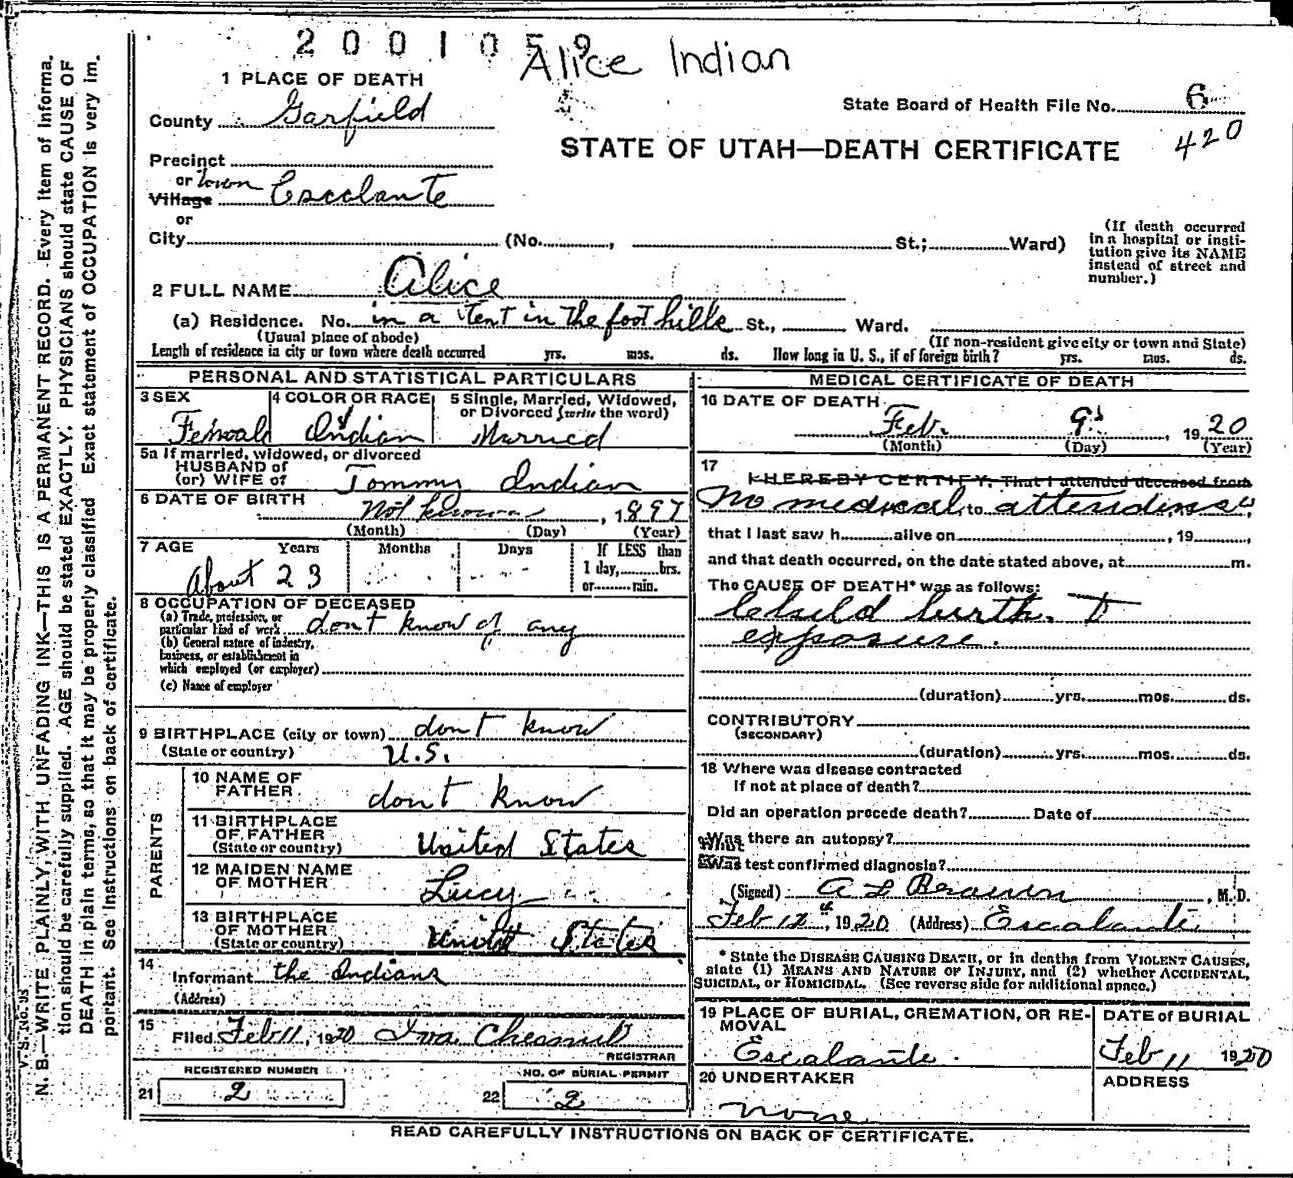 2001059
Alice Indian
1 PLACE OF DEATH
County Garfield
State Board of Health File No. 6
420
STATE OF UTAH—DEATH CERTIFICATE
Precinct
or town
Village Escalante
or
City (No. , St.; Ward)
(If death occurred
in a hospital or insti-
tution give its NAME
instead of street and
number.)
2 FULL NAME Alice
(a) Residence. No. in a tent in the foot hills St., Ward.
(Usual place of abode) (If non-resident give city or town and State)
Length of residence in city or town where death occurred yrs. mos. ds. How long in U. S., if of foreign birth? yrs. mos. ds.
PERSONAL AND STATISTICAL PARTICULARS
3 SEX 4 COLOR OR RACE 5 Single, Married, Widowed,
or Divorced (write the word)
Femald Indian Married
5a If married, widowed, or divorced
HUSBAND of
(or) WIFE of Tommy Indian
6 DATE OF BIRTH Not known , 1897
(Month) (Day) (Year)
7 AGE Years Months Days If LESS than
1 day, hrs.
or min.
About 23
8 OCCUPATION OF DECEASED
(a) Trade, profession, or
particular kind of work don't know of any
(b) General nature of industry,
business, or establishment in
which employed (or employer)
(c) Name of employer
9 BIRTHPLACE (city or town) don't know
(State or country) U.S.
PARENTS
10 NAME OF
FATHER don't know
11 BIRTHPLACE
OF FATHER
(State or country) United States
12 MAIDEN NAME
OF MOTHER Lucy
13 BIRTHPLACE
OF MOTHER
(State or country) United States
14
Informant the Indians
(Address)
15
Filed Feb 11, 1920 Iva Chesnut
REGISTRAR
REGISTERED NUMBER NO. OF BURIAL PERMIT
21 2 22 2
MEDICAL CERTIFICATE OF DEATH
16 DATE OF DEATH
Feb. 9 , 1920
(Month) (Day) (Year)
17
I HEREBY CERTIFY, That I attended deceased from
No medical to attendince
that I last saw h alive on , 19 ,
and that death occurred, on the date stated above, at m.
The CAUSE OF DEATH* was as follows:
Child birth.
exposure.
(duration) yrs. mos. ds.
CONTRIBUTORY
(SECONDARY)
(duration) yrs. mos. ds.
18 Where was disease contracted
If not at place of death?
Did an operation precede death? Date of
Was there an autopsy?
What test confirmed diagnosis?
(Signed) A L Brown , M. D.
Feb 12, 1920 (Address) Escalante
* State the DISEASE CAUSING DEATH, or in deaths from VIOLENT CAUSES,
state (1) MEANS AND NATURE OF INJURY, and (2) whether ACCIDENTAL,
SUICIDAL, or HOMICIDAL. (See reverse side for additional space.)
19 PLACE OF BURIAL, CREMATION, OR RE-
MOVAL
Escalante.
DATE of BURIAL
Feb 11 1920
20 UNDERTAKER
none
ADDRESS
READ CAREFULLY INSTRUCTIONS ON BACK OF CERTIFICATE.
V. S. No.
N. B.—WRITE PLAINLY, WITH UNFADING INK—THIS IS A PERMANENT RECORD. Every item of informa-
tion should be carefully supplied. AGE should be stated EXACTLY. PHYSICIANS should state CAUSE OF
DEATH in plain terms, so that it may be properly classified. Exact statement of OCCUPATION is very im-
portant. See instructions on back of certificate.